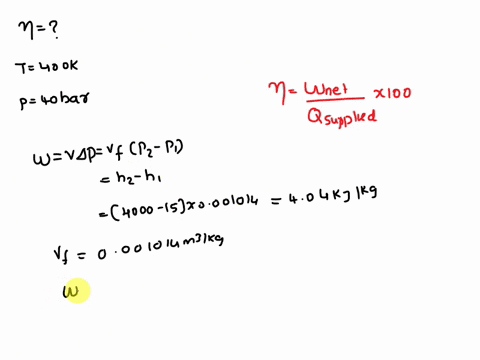 η = ?
T = 400K
P = 40bar
η = Wnet / Qsupplied x100
W = vΔP = vf (P2 - P1)
= h2 - h1
= (4000 - 15) x 0.001014 = 4.04 KJ/kg
vf = 0.001014 m³/kg
W